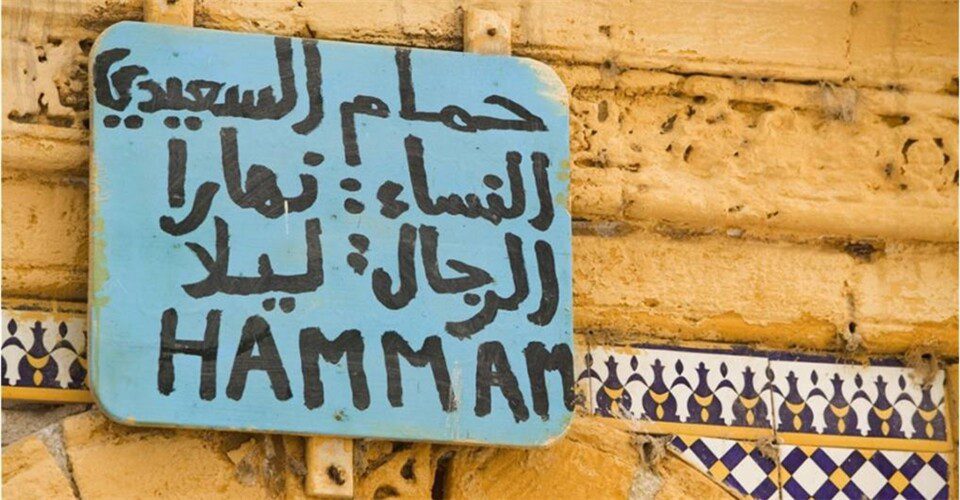 حمام السعيدي
النساء: نهارا
الرجال: ليلا
HAMMAM